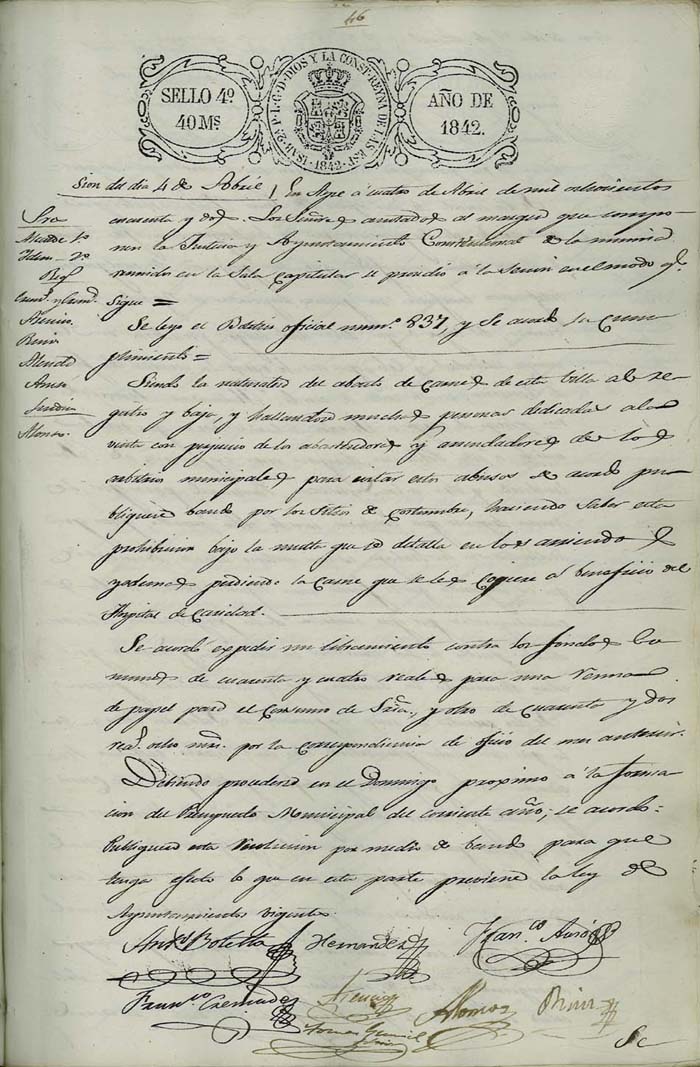 46
SELLO 4º
40 Mˢ.
ISAB. 2ª P. L. G. D. DIOS Y LA CONST. REYNA DE LAS ESP. 1842
AÑO DE
1842.
Sion del dia 4 de Abril
En Aspe á cuatro de Abril de mil ochocientos
Sres
cuarenta y dos. Los Señores anotados al margen que compo-
Alcalde 1º
nen la Justicia y Ayuntamiento Constitucional de la misma
Idem 2º
reunidos en la Sala Capitular se prosedio á la Sesion en el modo qe.
Sigue =
Asencio
Se leyo el Boletin official num.º 837, y se acordó su Cum
plimiento =
Siendo la naturaleza del abasto de Carnes de esta Villa al re-
gistro y baja, y hallandose muchas personas dedicadas a la
Alonso.
venta con perjuicio de los abastecedores y arrendadores de los
arbitrios municipales para evitar estos abusos se acordó pu-
bliquese bando por los Sitios de Costumbre, haciendo Saber esta
prohibicion bajo la multa que se detalla en los arriendos
y ademas perdiendo la Carne que se les cogiere al beneficio del
Hospital de Caridad.
Se acordó expedir un libramiento contra los fondos Co
munes de cuarenta y cuatro reales para una resma
de papel para el Consumo de Sría., y otro de cuarenta y dos
reas. ocho mrs. por la correspondiencia de oficio del mes anterior.
Debiendo procederse en el Domingo proximo á la forma
cion del Presupuesto Municipal del corriente año; se acordo:
Publiquese esta resolucion por medio de bando para que
tenga efecto lo que en esta parte previene la ley de
Ayuntamientos vigente.
Antº Botella
Hernandez
Franco Ausó
Franco Cremades
Asencio
Alonso